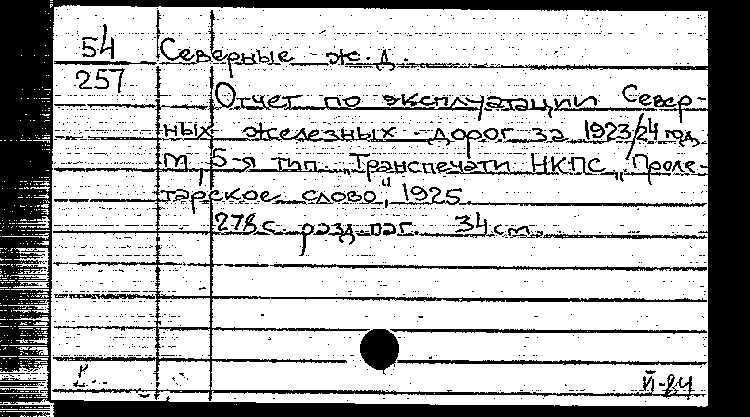 54
257
Северные ж.д.
Отчет по эксплуатации Север-
ных железных дорог за 1923/24 год
М, 5-я тип. "Транспечати НКПС "Проле-
тарское слово", 1925.
278 с. разд. паг. 34 cm.
й-84